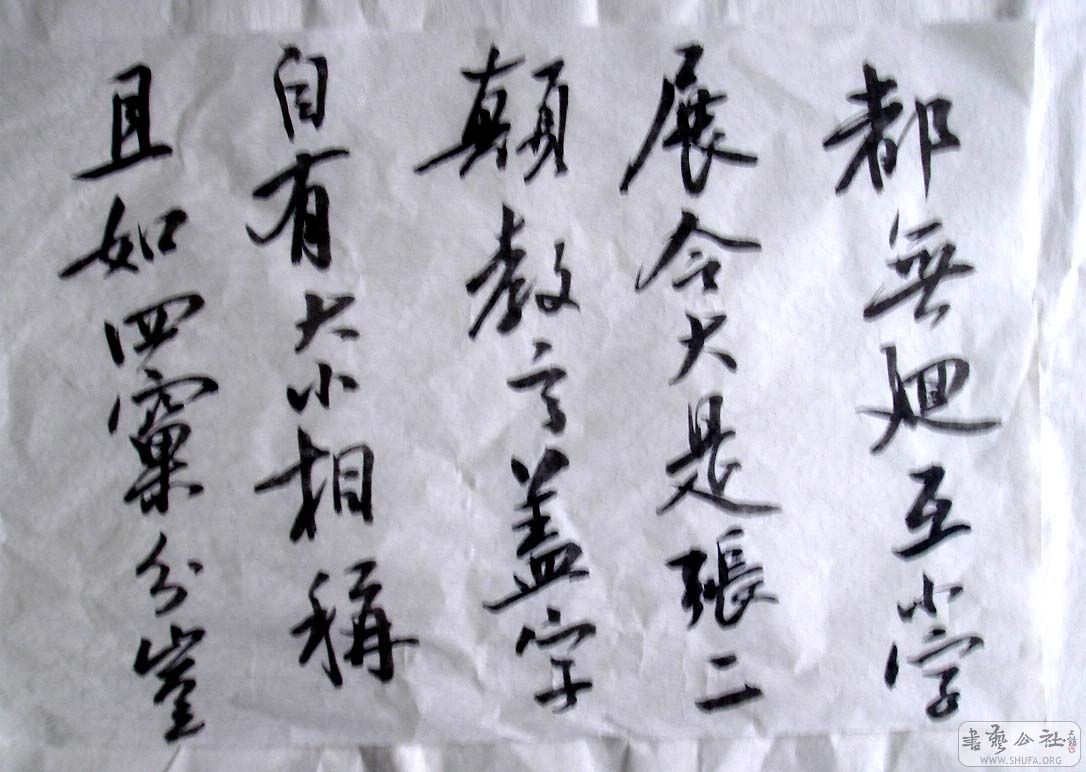 都無廻互小字
展令大是張二
顛教言盖字
自有大小相稱
且如四窠分豈
書藝公社
WWW.SHUFA.ORG